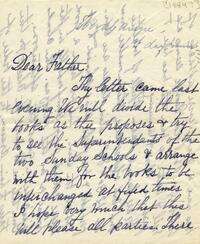 Dear Father.
Thy letter came last
evening. We will divide the
books as thee proposes & try
to see the Superintendents of the
two Sunday Schools & arrange
with them for the books to be
interchanged at fixed times
I hope very much that this
will please all parties. There